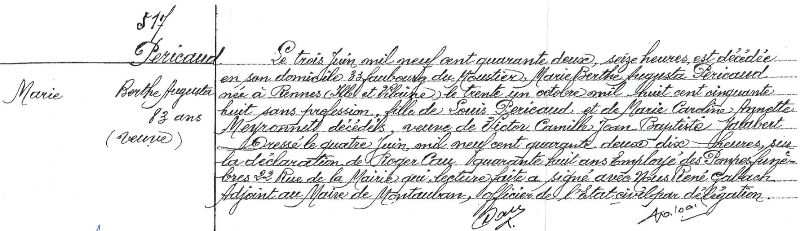 517
Pericaud
Marie Berthe Augusta
83 ans
(veuve)
Le trois Juin mil neuf cent quarante deux, seize heures, est décédée
en son domicile 33 faubourg du Moustier, Marie Berthe Augusta Pericaud
née à Rennes (Ille et Vilaine), le trente un octobre mil huit cent cinquante
huit sans profession, fille de Louis Pericaud et de Marie Caroline Annette
Meyronnet décédés, veuve de Victor Camille Jean Baptiste Jalabert
Dressé le quatre Juin, mil neuf cent quarante deux dix heures, sur
la déclaration de Roger quarante huit ans Employé des Pompes funè-
bres 22 Rue de la Mairie qui lecture faite a signé avec Nous René
Adjoint au Maire de Montauban, officier de l'Etat civil par délégation.